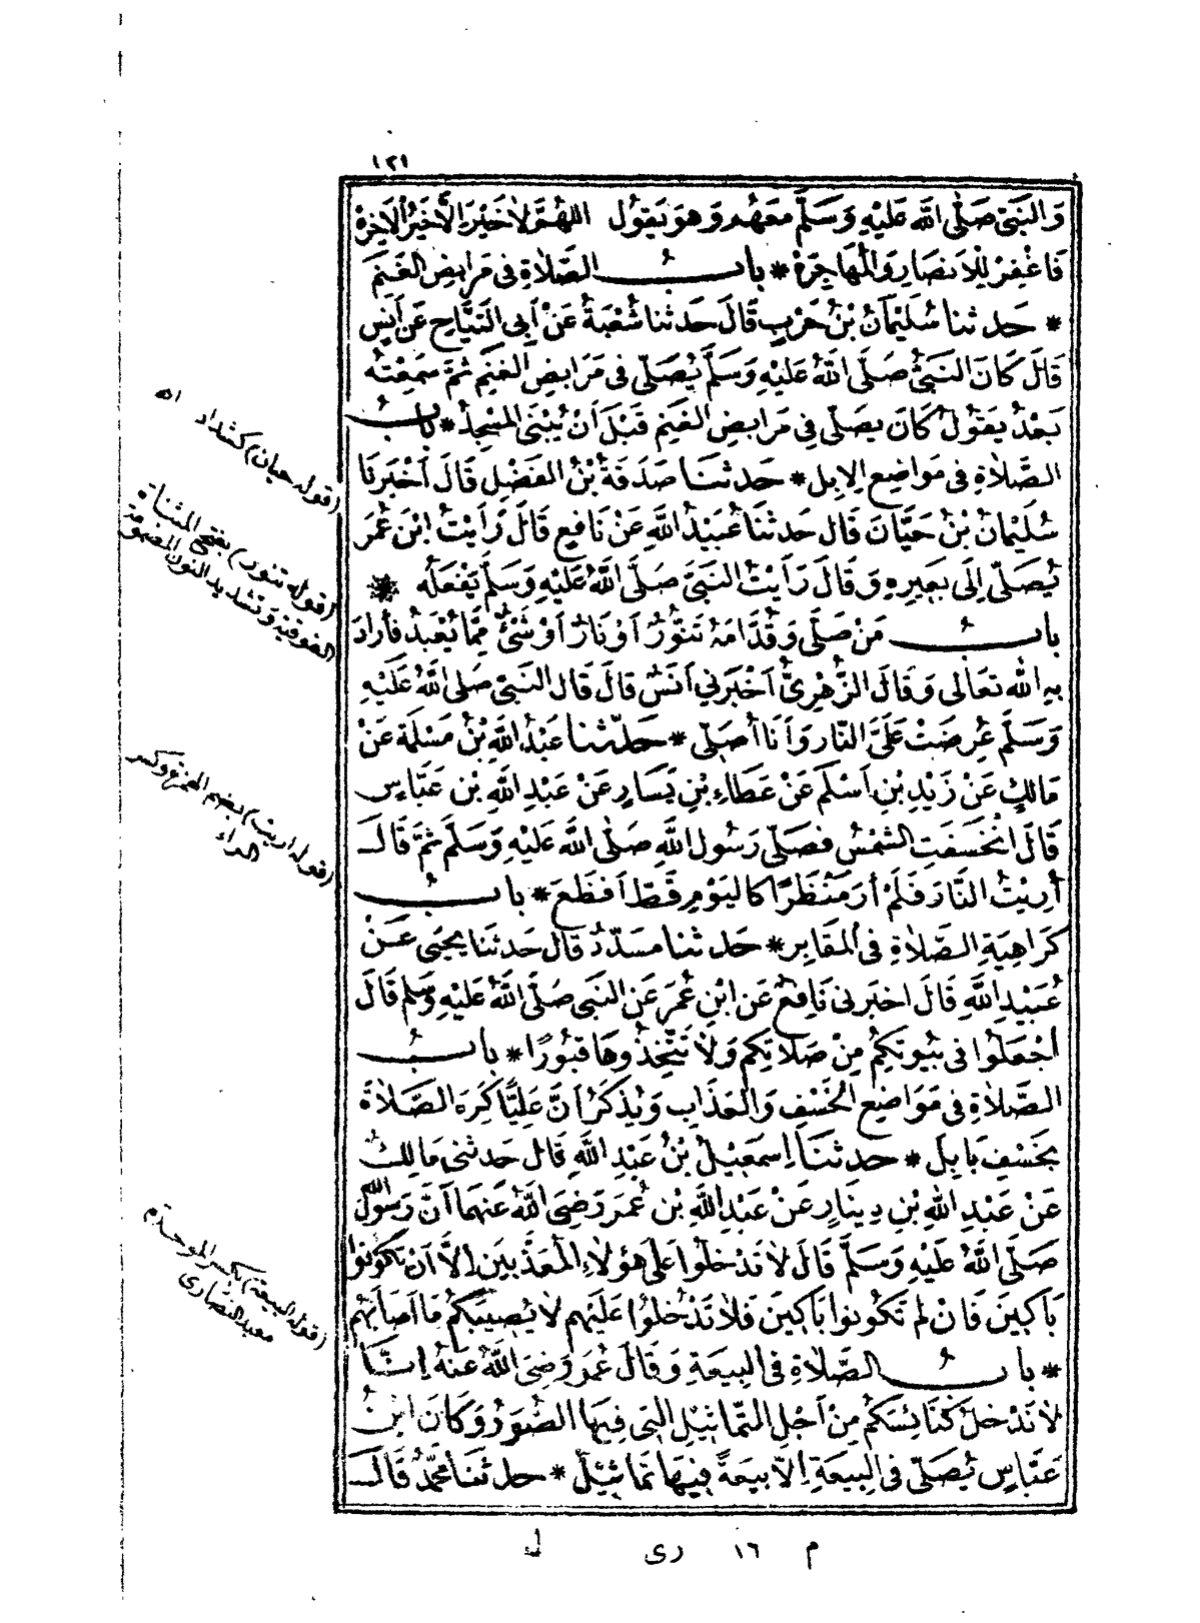 ١٢١
وَالنَّبِيُّ صَلَّى اللَّهُ عَلَيْهِ وَسَلَّمَ مَعَهُمْ وَهُوَ يَقُولُ اللَّهُمَّ لَا خَيْرَ إِلَّا خَيْرُ الْآخِرَهْ
فَاغْفِرْ لِلْأَنْصَارِ وَالْمُهَاجِرَهْ * بابُ الصَّلَاةِ فِي مَرَابِضِ الْغَنَمِ
* حَدثنا سُلَيْمَانُ بْنُ حَرْبٍ قَالَ حَدثنا شُعْبَةُ عَنْ أَبِي التَّيَّاحِ عَنْ أَنَسٍ
قَالَ كَانَ النَّبِيُّ صَلَّى اللَّهُ عَلَيْهِ وَسَلَّمَ يُصَلِّي فِي مَرَابِضِ الْغَنَمِ ثُمَّ سَمِعْتُهُ
بَعْدُ يَقُولُ كَانَ يُصَلِّي فِي مَرَابِضِ الْغَنَمِ قَبْلَ أَنْ يُبْنَى الْمَسْجِدُ * بابُ
الصَّلَاةِ فِي مَوَاضِعِ الْإِبِلِ * حَدثنَا صَدَقَةُ بْنُ الْفَضْلِ قَالَ أَخْبَرَنَا
سُلَيْمَانُ بْنُ حَيَّانَ قَالَ حَدثنَا عُبَيْدُ اللَّهِ عَنْ نَافِعٍ قَالَ رَأَيْتُ ابْنَ عُمَرَ
يُصَلِّي إِلَى بَعِيرِهِ وَقَالَ رَأَيْتُ النَّبِيَّ صَلَّى اللَّهُ عَلَيْهِ وَسَلَّمَ يَفْعَلُهُ *
بابُ مَنْ صَلَّى وَقُدَّامَهُ تَنُّورٌ أَوْ نَارٌ أَوْ شَيْءٌ مِمَّا يُعْبَدُ فَأَرَادَ
بِهِ اللَّهَ تَعَالَى وَقَالَ الزُّهْرِيُّ أَخْبَرَنِي أَنَسٌ قَالَ قَالَ النَّبِيُّ صَلَّى اللَّهُ عَلَيْهِ
وَسَلَّمَ عُرِضَتْ عَلَيَّ النَّارُ وَأَنَا أُصَلِّي * حَدّثنا عَبْدُ اللَّهِ بْنُ مَسْلَمَةَ عَنْ
مَالِكٍ عَنْ زَيْدِ بْنِ أَسْلَمَ عَنْ عَطَاءِ بْنِ يَسَارٍ عَنْ عَبْدِ اللَّهِ بْنِ عَبَّاسٍ
قَالَ انْخَسَفَتِ الشَّمْسُ فَصَلَّى رَسُولُ اللَّهِ صَلَّى اللَّهُ عَلَيْهِ وَسَلَّمَ ثُمَّ قَالَ
أُرِيتُ النَّارَ فَلَمْ أَرَ مَنْظَرًا كَالْيَوْمِ قَطُّ أَفْظَعَ * بابُ
كَرَاهِيَةِ الصَّلَاةِ فِي الْمَقَابِرِ * حَدثنا مُسَدَّدٌ قَالَ حَدثَنَا يَحْيَى عَنْ
عُبَيْدِ اللَّهِ قَالَ أَخْبَرَنِي نَافِعٌ عَنِ ابْنِ عُمَرَ عَنِ النَّبِيِّ صَلَّى اللَّهُ عَلَيْهِ وَسَلَّمَ قَالَ
اجْعَلُوا فِي بُيُوتِكُمْ مِنْ صَلَاتِكُمْ وَلَا تَتَّخِذُوهَا قُبُورًا * بابُ
الصَّلَاةِ فِي مَوَاضِعِ الْخَسْفِ وَالْعَذَابِ وَيُذْكَرُ أَنَّ عَلِيًّا كَرِهَ الصَّلَاةَ
بِخَسْفِ بَابِلَ * حَدثنَا إِسْمَعِيلُ بْنُ عَبْدِ اللَّهِ قَالَ حَدثنِي مَالِكٌ
عَنْ عَبْدِ اللَّهِ بْنِ دِينَارٍ عَنْ عَبْدِ اللَّهِ بْنِ عُمَرَ رَضِيَ اللَّهُ عَنْهُمَا أَنَّ رَسُولَ اللَّهِ
صَلَّى اللَّهُ عَلَيْهِ وَسَلَّمَ قَالَ لَا تَدْخُلُوا عَلَى هَؤُلَاءِ الْمُعَذَّبِينَ إِلَّا أَنْ تَكُونُوا
بَاكِينَ فَإِنْ لَمْ تَكُونُوا بَاكِينَ فَلَا تَدْخُلُوا عَلَيْهِمْ لَا يُصِيبُكُمْ مَا أَصَابَهُمْ
* بابُ الصَّلَاةِ فِي الْبِيعَةِ وَقَالَ عُمَرُ رَضِيَ اللَّهُ عَنْهُ إِنَّا
لَا نَدْخُلُ كَنَائِسَكُمْ مِنْ أَجْلِ التَّمَاثِيلِ الَّتِي فِيهَا الصُّوَرُ وَكَانَ ابْنُ
عَبَّاسٍ يُصَلِّي فِي الْبِيعَةِ إِلَّا بِيعَةً فِيهَا تَمَاثِيلُ * حدثَنَا مُحَمَّدٌ قَالَ
(قوله حيان) كشداد اه
(قوله تنور) بفتح المثناة
الفوقية وتشديد النون المضمومة
(قوله اريت) بضم الهمزة وكسر
الراء
(قوله البيعة) بكسر الموحدة
معبد النصارى
م ١٦ رى ل